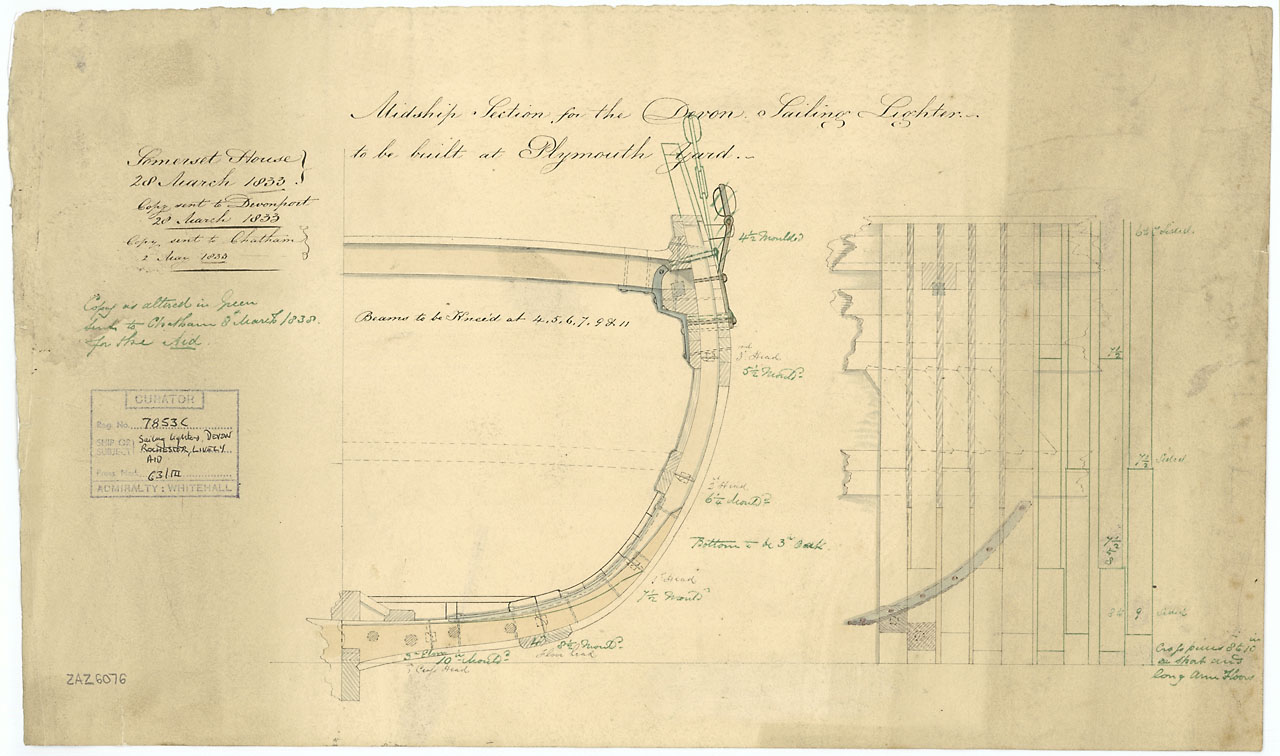 Midship Section for the Devon Sailing Lighter
to be built at Plymouth Yard.
Somerset House
28 March 1833
Copy sent to Devonport
28 March 1833
Copy sent to Chatham
2 Mar 1833
Copy as altered in Green
sent to Chatham 8th March 1838.
for the Aid.
CURATOR
Reg. No. 7853C
SHIP OR SUBJECT Sailing Lighters DEVON
ROCHESTER, LIVELY
AID
63/III
ADMIRALTY: WHITEHALL
ZAZ6076
Beams to be Kneed at 4, 5, 6, 7, 9 & 11
4½ Moulded
3d Head
5½ Mould.d
2d Head
6¼ Mould.d
Bottom to be 3 in Oak
1st Head
7½ Mould.d
8½ Mould.d
Floor Head
10 Mould.d
Sided.
7½
7½ Sided
7½
8½ 9
Cross pieces
a short and
long Arm Floors